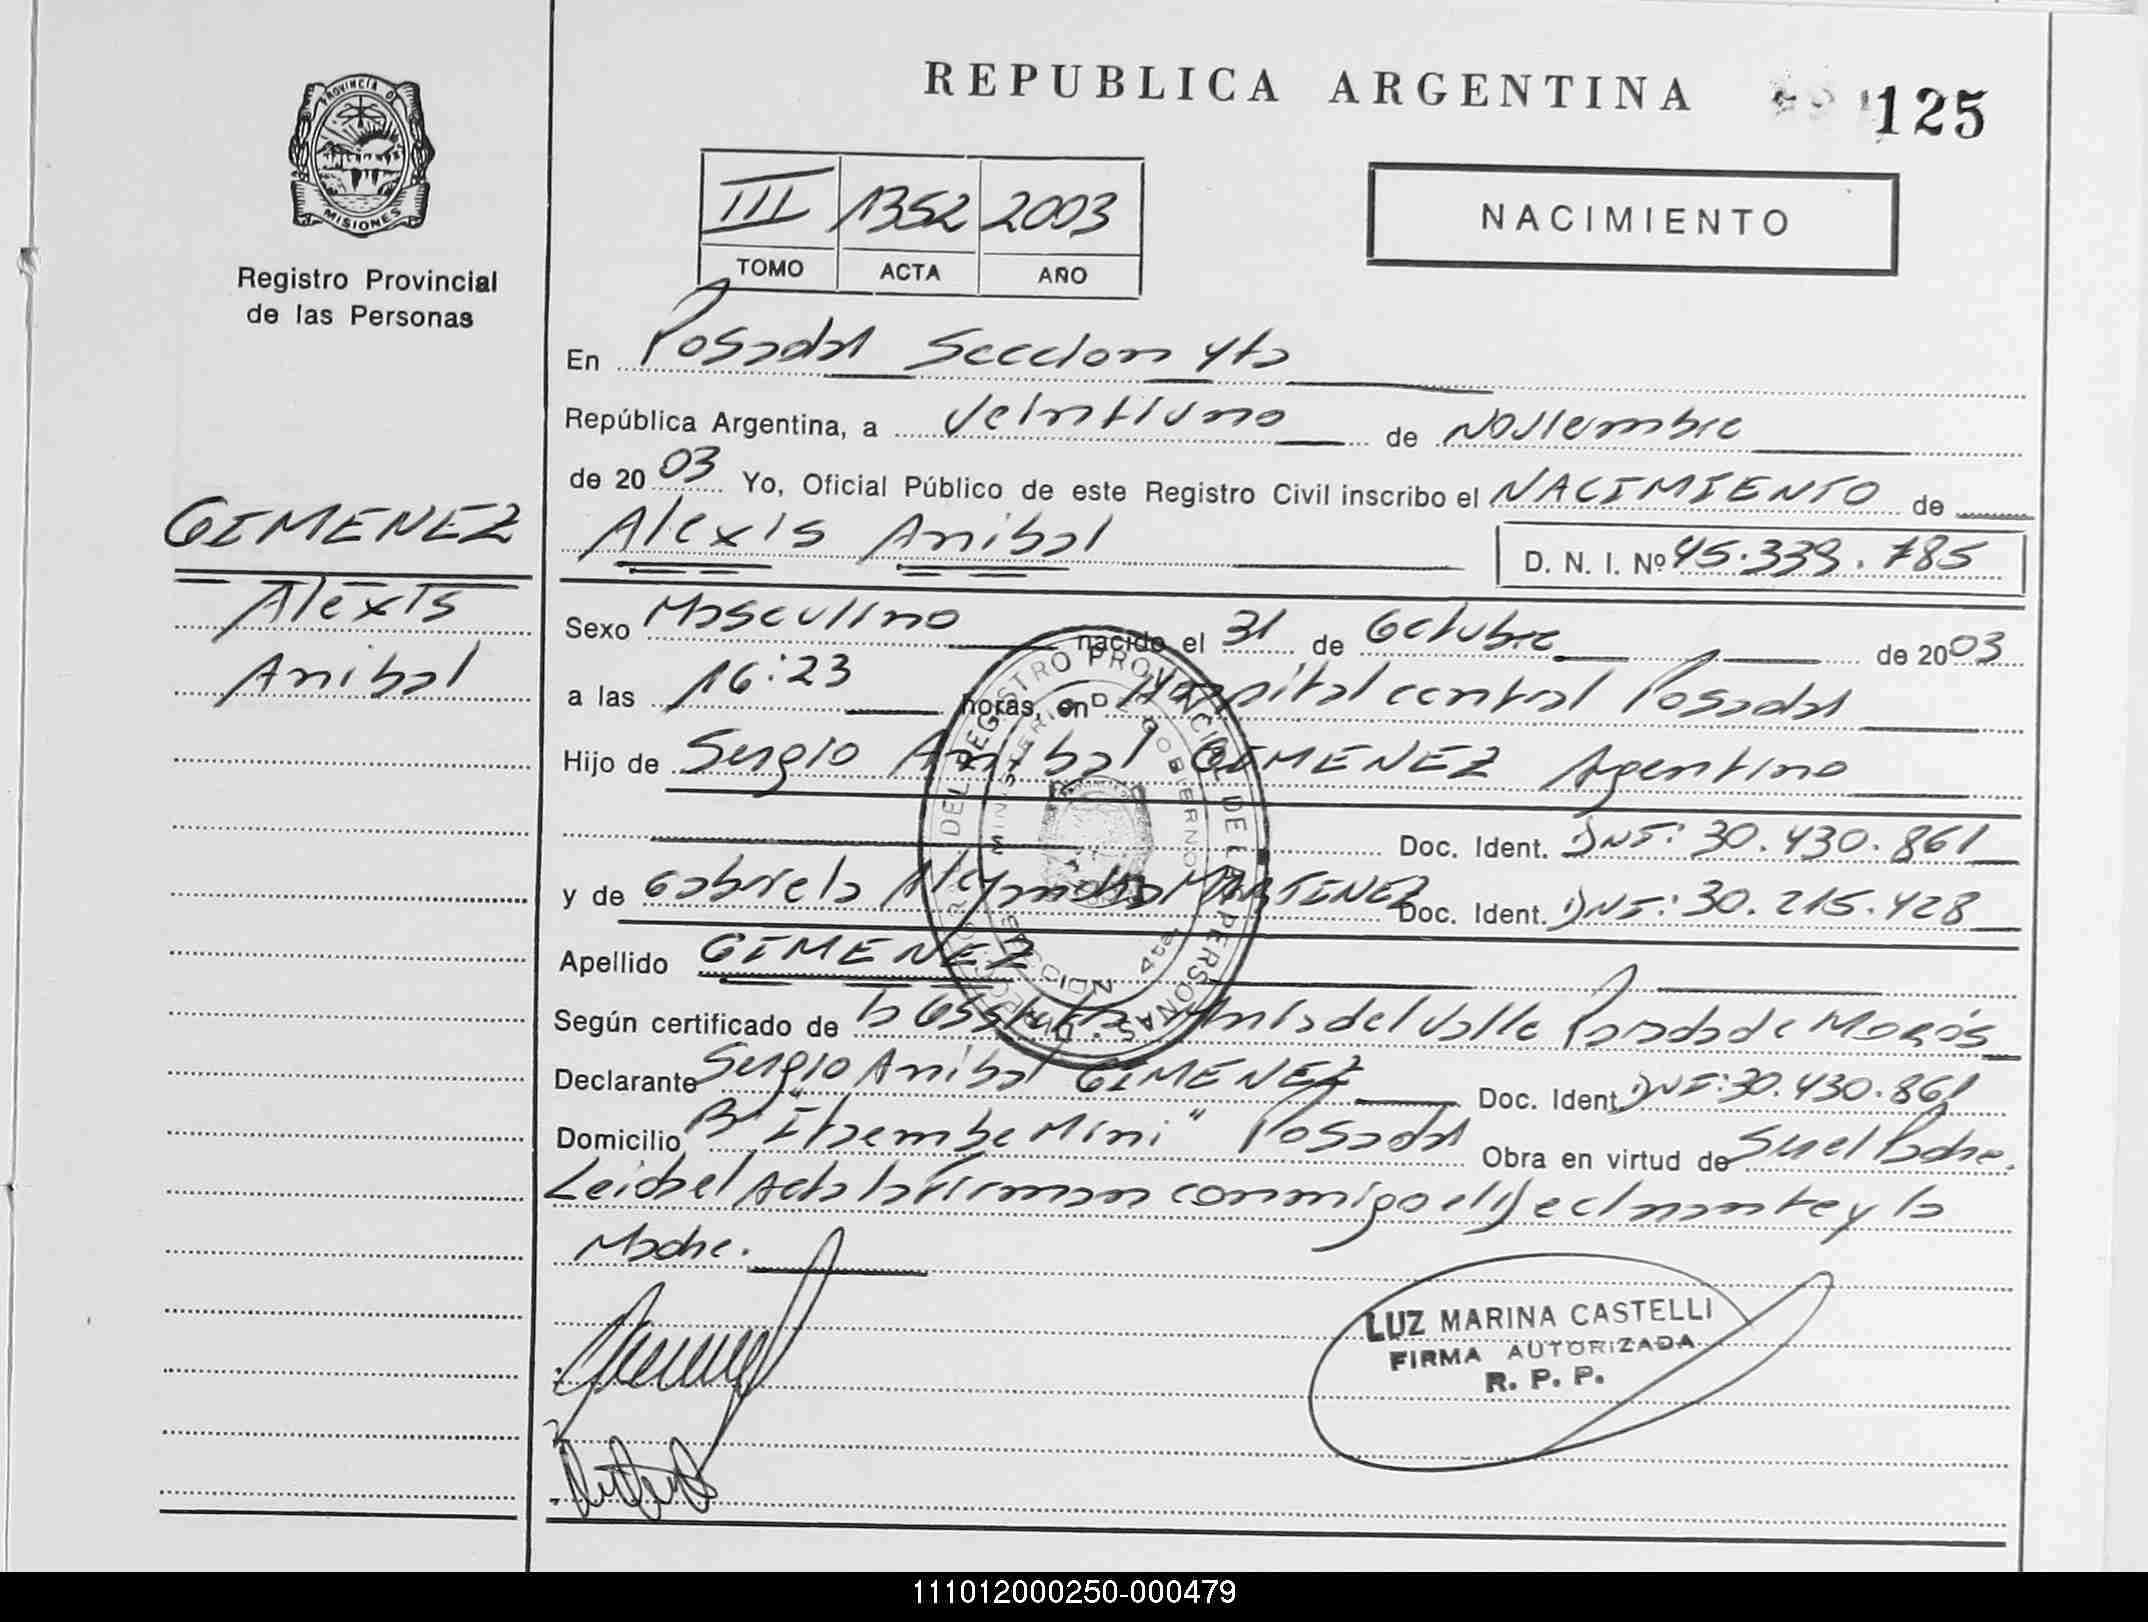 REPUBLICA ARGENTINA
125
PROVINCIA D
MISIONES
Registro Provincial
de las Personas
III 1352 2003
TOMO ACTA AÑO
NACIMIENTO
En Posadas Seccion 4ta
República Argentina, a Veintiuno de Noviembre
de 2003 Yo, Oficial Público de este Registro Civil inscribo el NACIMIENTO de
GIMENEZ
Alexis
Anibal
Alexis Anibal D. N. I. Nº 45.339.785
Sexo Masculino nacido el 31 de Octubre de 2003
a las 16:23 horas, en Hospital central Posadas
Hijo de Sergio Anibal GIMENEZ Agentino
Doc. Ident. DNI: 30.430.861
y de Gabriela Alejandra MARTINEZ Doc. Ident. DNI: 30.215.428
Apellido GIMENEZ
Según certificado de la del Valle Posada de
Declarante Sergio Anibal GIMENEZ Doc. Ident DNI: 30.430.861
Domicilio Bº "Itaembe Mini" Posadas Obra en virtud de Ser el Padre.
Leida el Acta la firman conmigo el Declarante y la
Madre.
REGISTRO PROVINCIAL DE LAS PERSONAS
MINISTERIO DE GOBIERNO
SECCION 4ta.
LUZ MARINA CASTELLI
FIRMA AUTORIZADA
R. P. P.
111012000250-000479